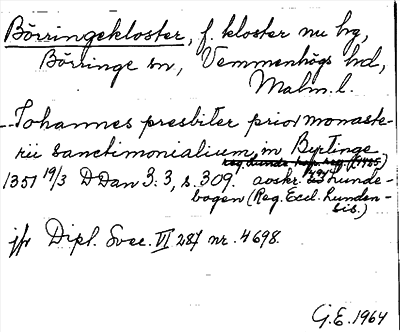 Börringekloster, f. kloster nu hg,
Börringe sn, Vemmenhögs hd,
Malm. l.
Johannes presbiter prior monaste-
rii sanctimonialium in Byrtinge
1351 19/3 DDan 3:3, s. 309. avskr. Lunde-
bogen (Reg. Eccl. Lunden-
sis.)
jfr Dipl. Svec. VI 287 nr. 4698.
G.E. 1964